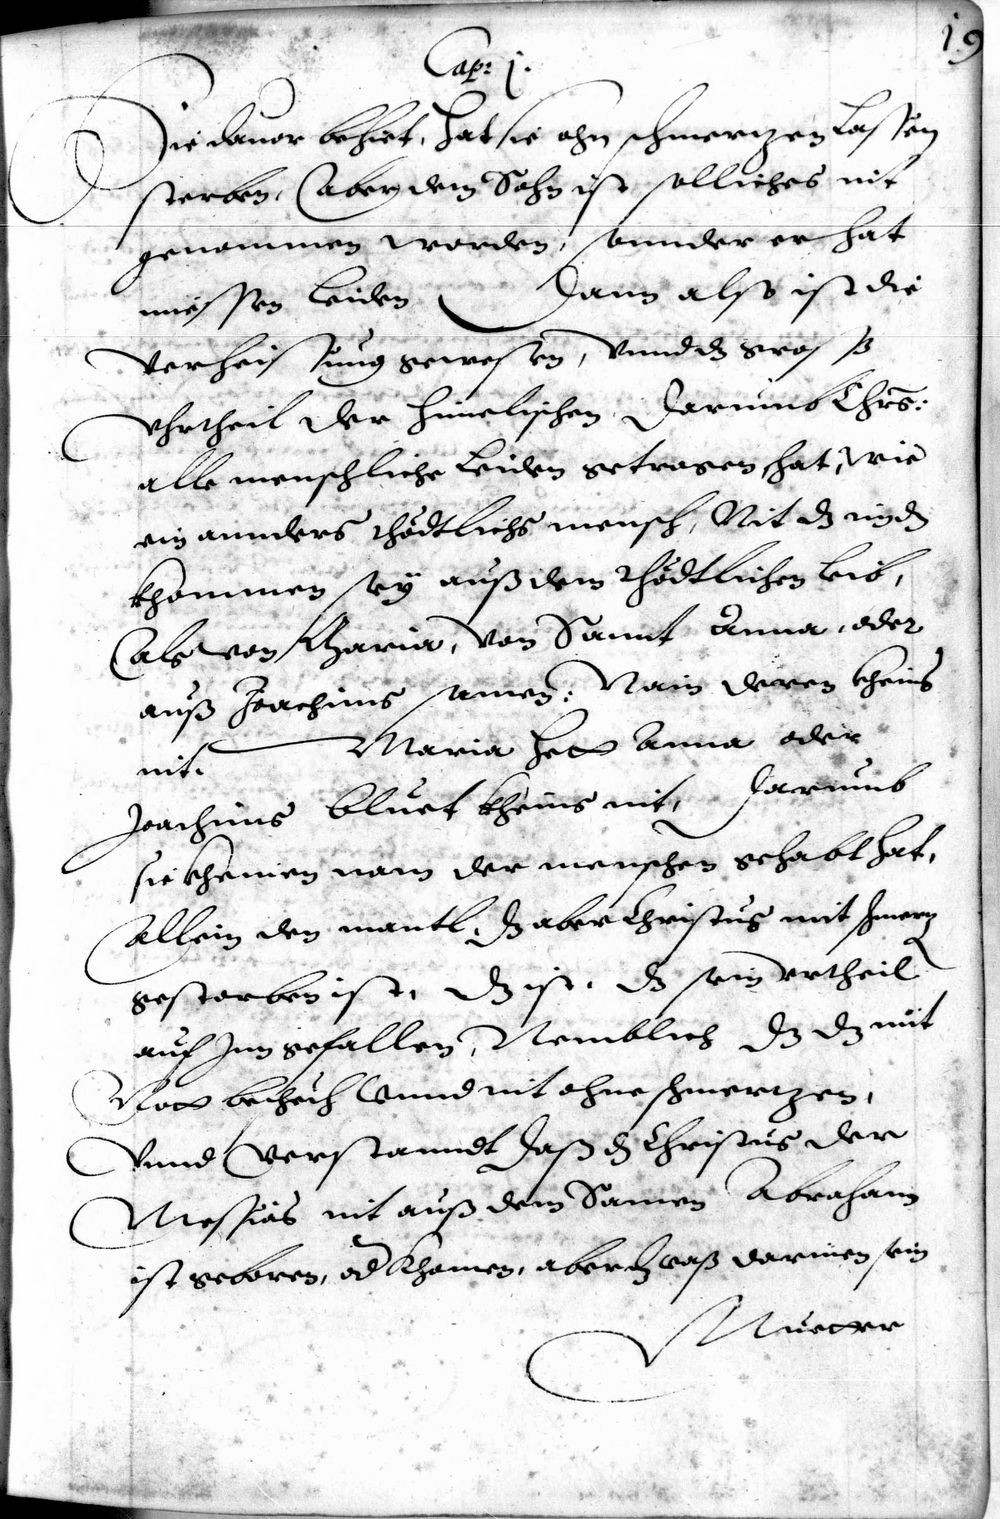 19
Cap: 1.
Sie dauor behiet, hat sie ohn schmertzen Lassen
sterben, Aber dem Sohn ist solliches nit
genommen worden, sonnder er hat
miessen Leiden Dann also ist die
verheissung gewesen, vnnd dz gross
Vhrtheil der himelischen Darumb Chrs:
alle menschliche Leiden getragen hat, wie
ein annders thödtlichs mensch, Nit dz
khommen sey auß dem thödtlichen leib,
Als von Maria, von Sannt Anna, oder
auß Joachims samen: Nain deren kheins
nit. Maria hett Anna oder
Joachims bluet kheins nit, Darumb
sie kheinen nam der menschen gehabt hat,
Allein den mantl, dz aber Christus mit schmertz
gestorben ist, dz ist, dz sein vrtheil
auf Jm gefallen, Nemblich dz dz mit
Nott beschech vnnd nit ohne schmertzen,
Vnnd verstanndt daß dz Christus der
Messias nit auß dem Samen Abraham
ist geboren, od khomen, aber dz waß darinen sein
Muetter